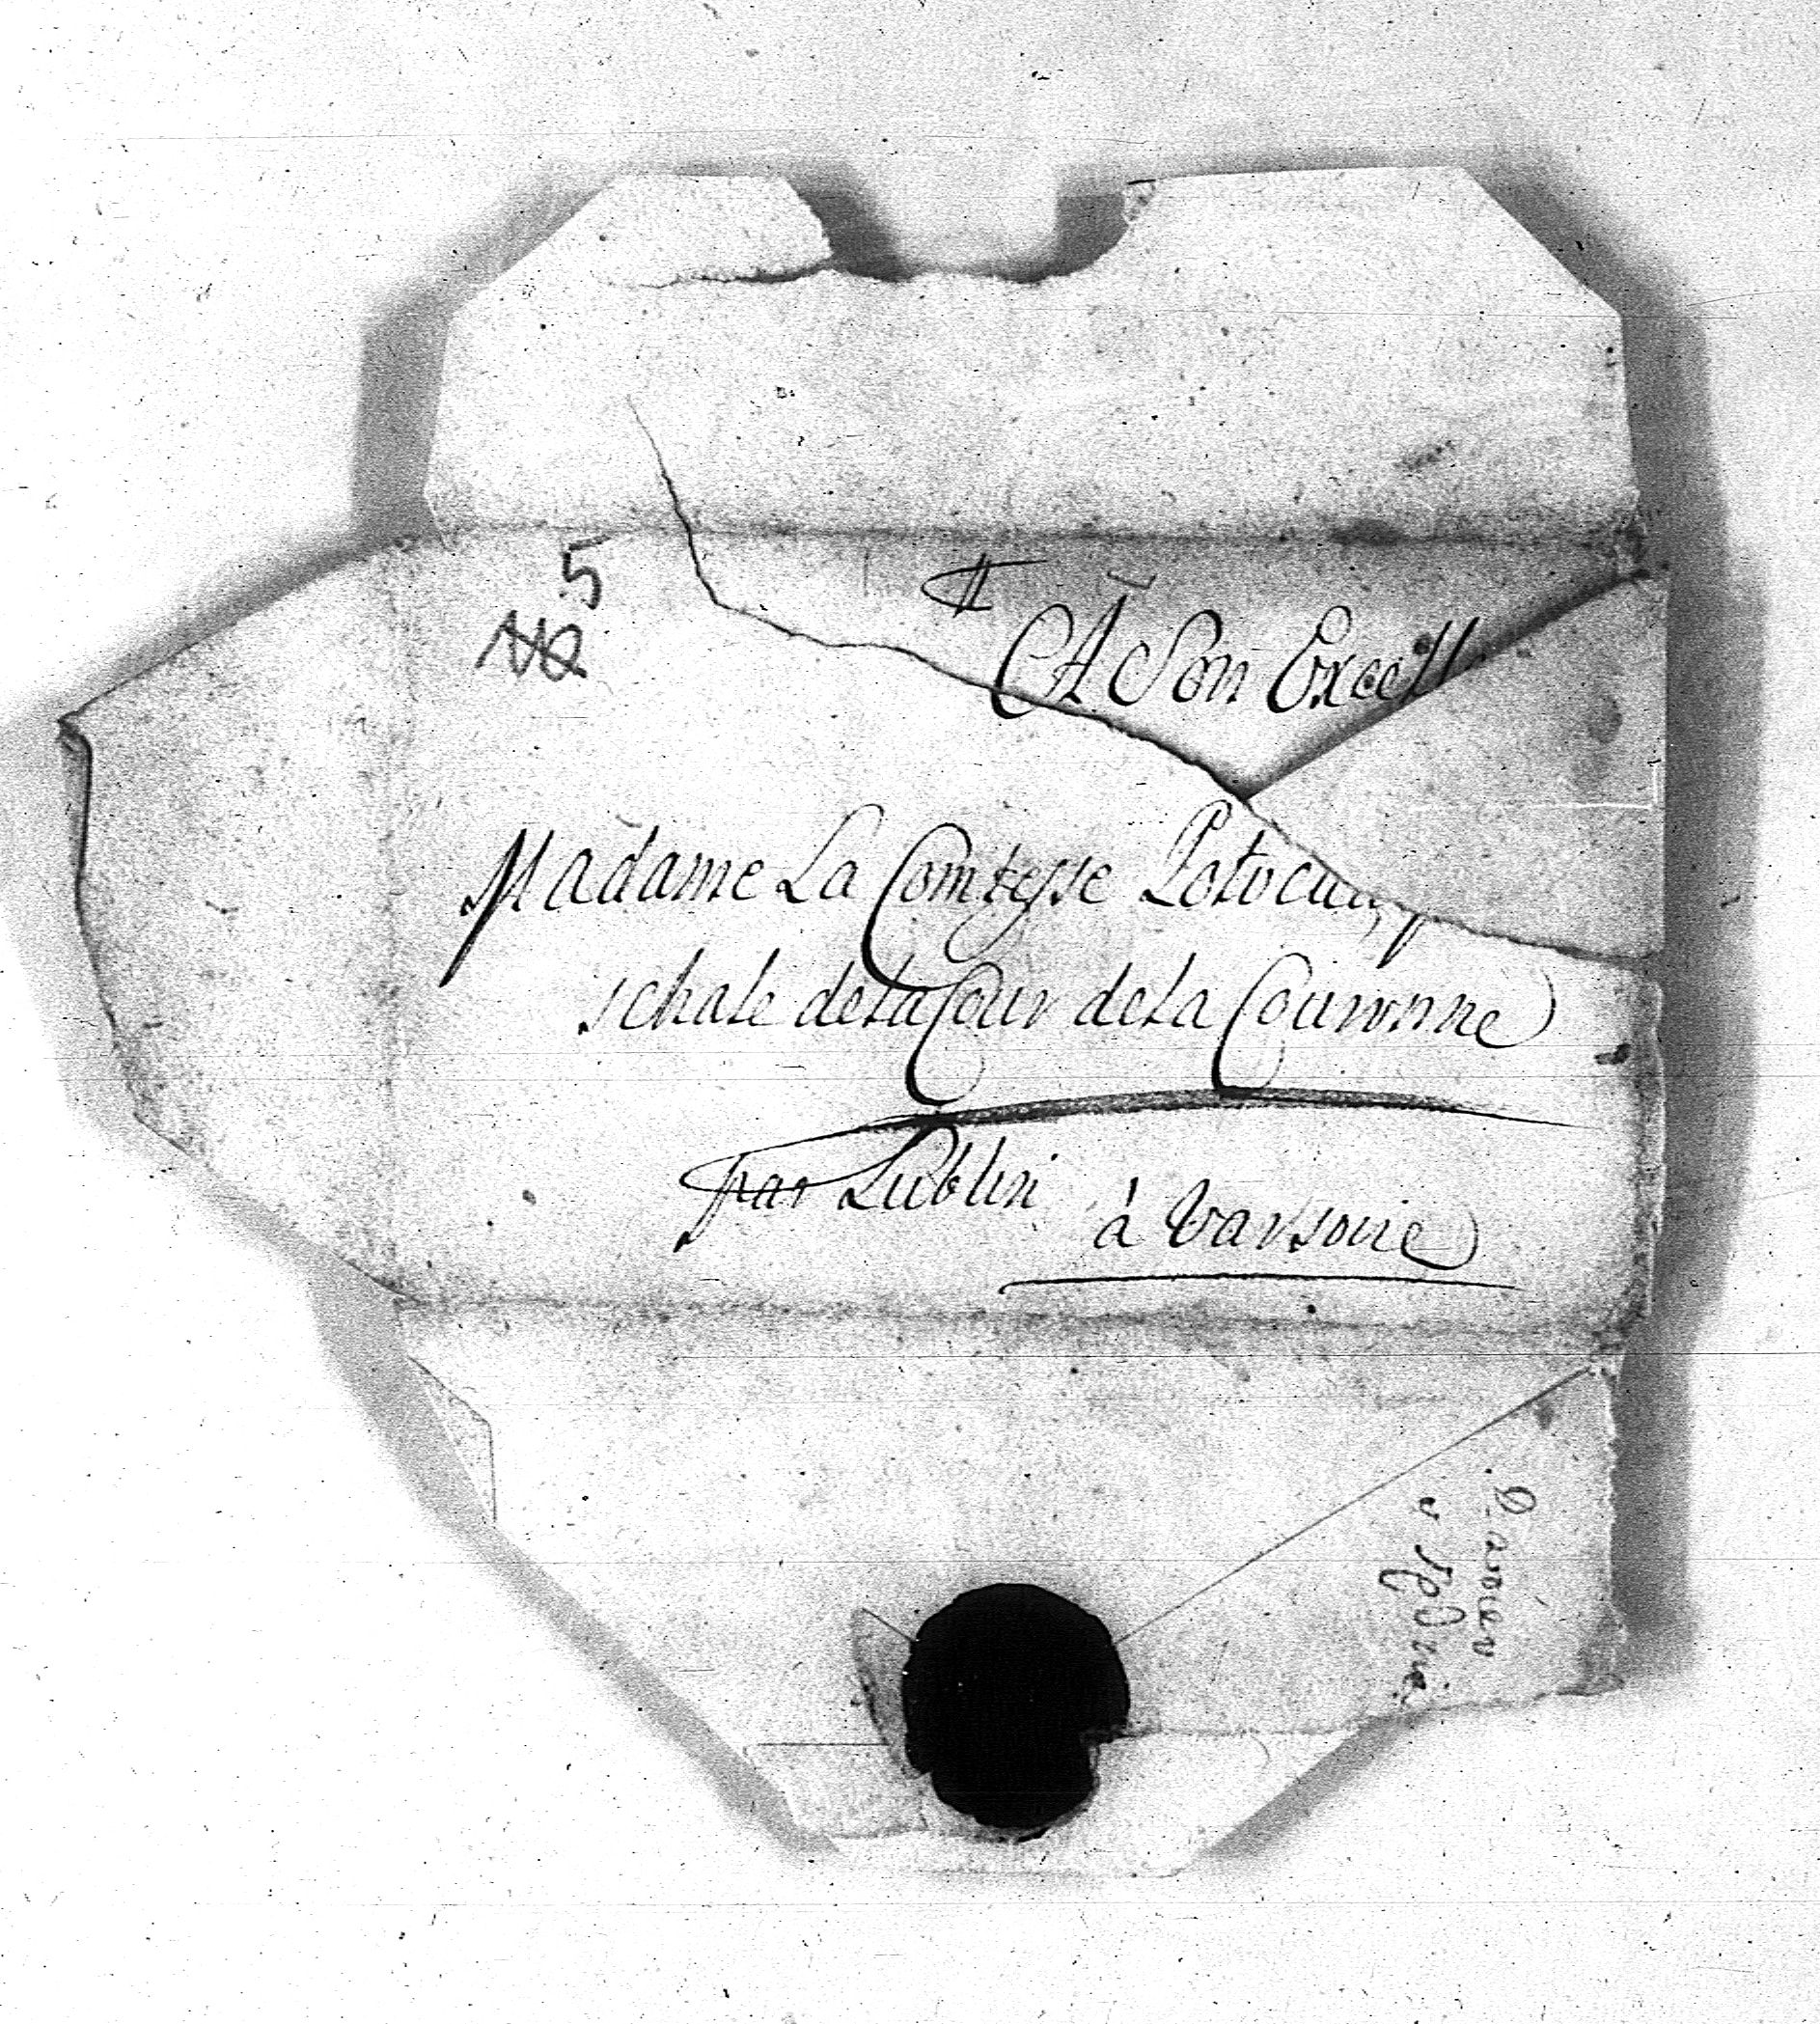 5
A Son Excell
Madame La Comtesse Potocka
schale de la Cour de la Couronne
par Lublin
à Varsovie